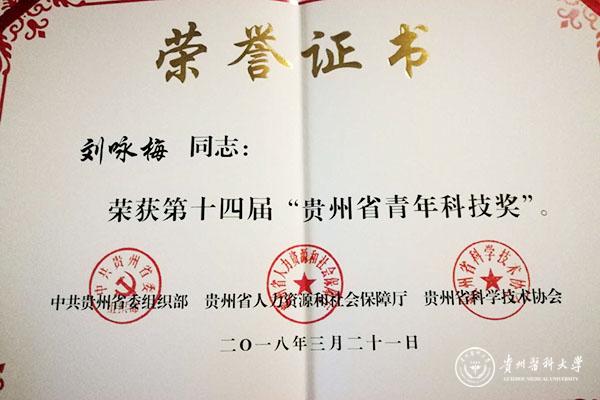 荣誉证书
刘咏梅 同志：
荣获第十四届“贵州省青年科技奖”。
中共贵州省委组织部 贵州省人力资源和社会保障厅 贵州省科学技术协会
二〇一八年三月二十一日
贵州医科大学
GUIZHOU MEDICAL UNIVERSITY